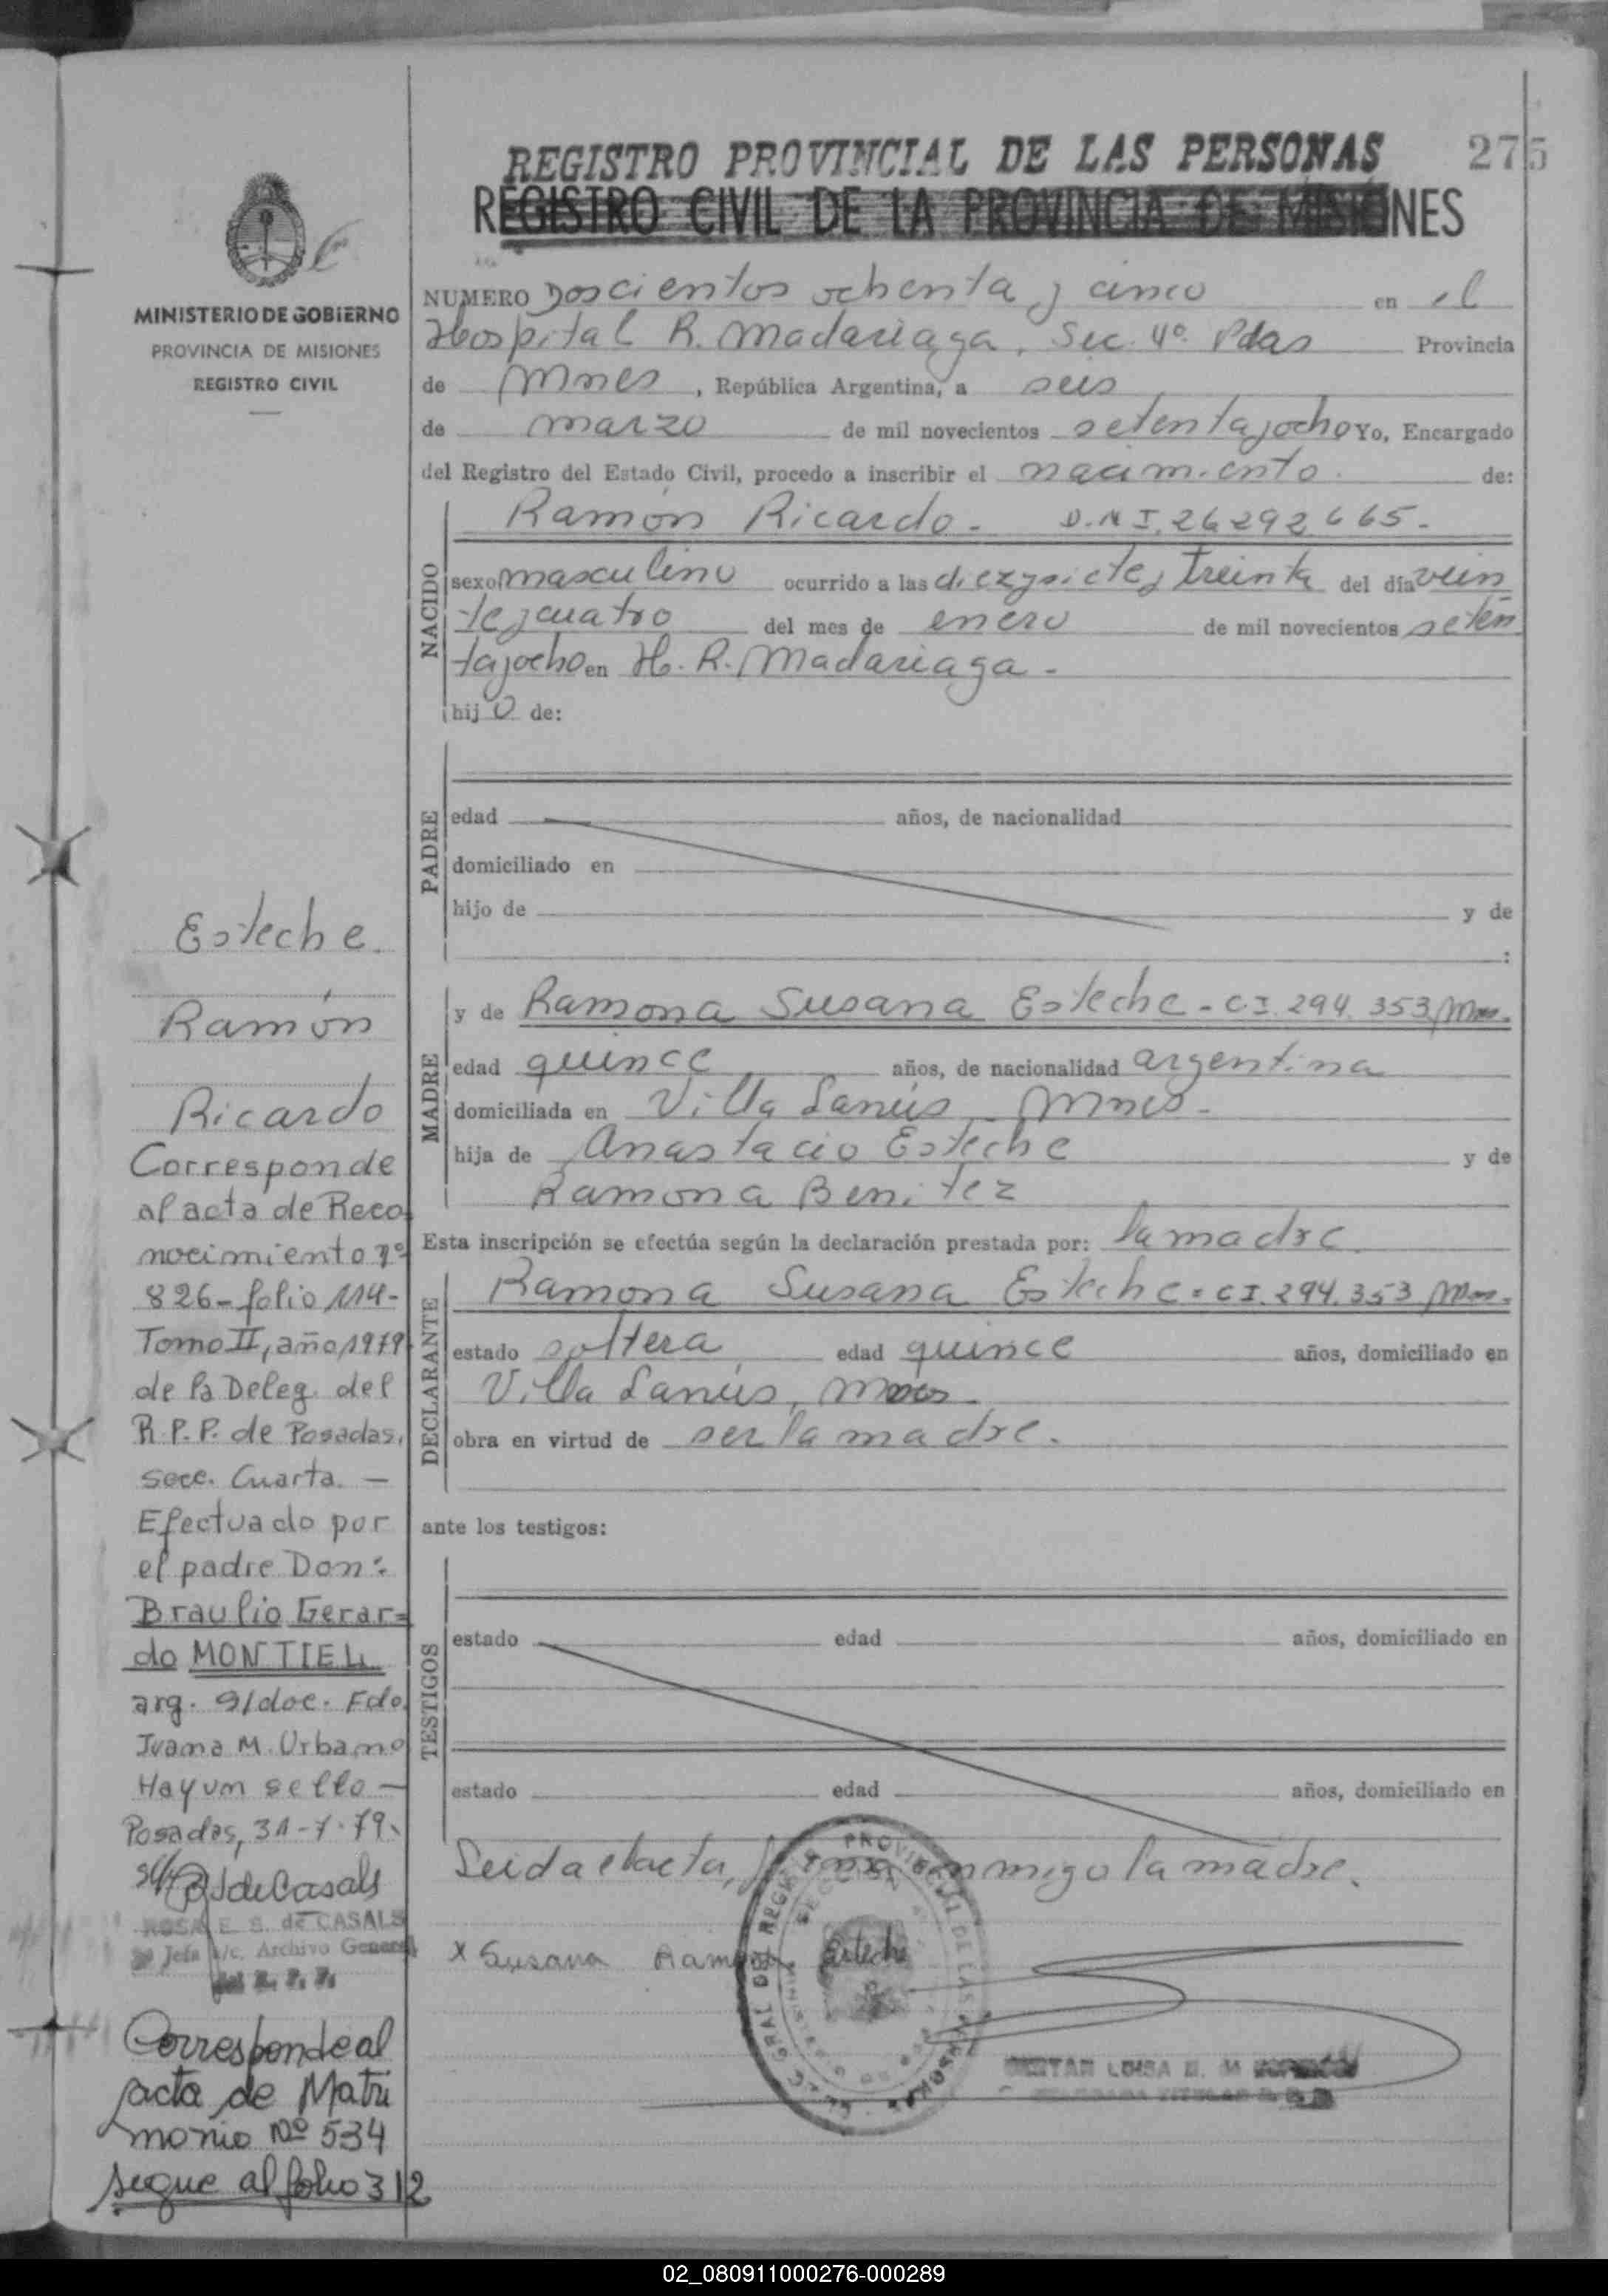 275
REGISTRO PROVINCIAL DE LAS PERSONAS
REGISTRO CIVIL DE LA PROVINCIA DE MISIONES
MINISTERIO DE GOBIERNO
PROVINCIA DE MISIONES
REGISTRO CIVIL
NUMERO Doscientos ochenta y cinco en el
Hospital R. Madariaga, Sec. 4º. Pdas Provincia
de Mnes, República Argentina, a seis
de marzo de mil novecientos setentayocho Yo, Encargado
del Registro del Estado Civil, procedo a inscribir el nacimiento. de:
NACIDO
Ramón Ricardo. D.N.I. 26292665.
sexo masculino ocurrido a las diezysiete y treinta del día vein
teycuatro del mes de enero de mil novecientos seten
tayocho en H. R. Madariaga.
hijo de:
PADRE
edad años, de nacionalidad
domiciliado en
hijo de y de
:
MADRE
y de Ramona Susana Esteche - CI. 294.353 Mns.
edad quince años, de nacionalidad argentina
domiciliada en Villa Lanús, Mnes.
hija de Anastacio Esteche y de
Ramona Benitez
Esta inscripción se efectúa según la declaración prestada por: la madre.
DECLARANTE
Ramona Susana Esteche = CI. 294.353 Mns.
estado soltera, edad quince años, domiciliado en
Villa Lanús, Mnes.
obra en virtud de ser la madre.
ante los testigos:
TESTIGOS
estado edad años, domiciliado en
estado edad años, domiciliado en
Leida el acta, firma conmigo la madre.
x Susana Ramona Esteche
Esteche.
Ramón
Ricardo
Corresponde
al acta de Reco
nocimiento nº
826-folio 114-
Tomo II, año 1979
de la Deleg. del
R.P.P. de Posadas,
secc. Cuarta. -
Efectuado por
el padre Don:
Braulio Gerar=
do MONTIEL
arg. s/doc. Fdo.
Juana M. Urbano
Hay un sello -
Posadas, 31-7-79.
ROSA E. S. de CASALS
Jefa a/c. Archivo General
del R. P. P.
Corresponde al
acta de Matri
monio Nº 534
sigue al folio 312
02_080911000276-000289